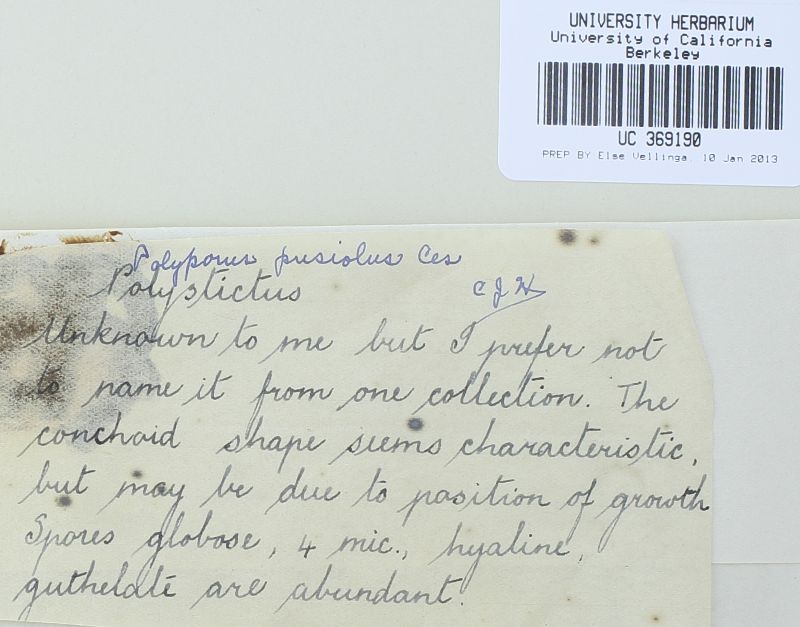 UNIVERSITY HERBARIUM
University of California
Berkeley
UC 369190
PREP BY Else Vellinga, 10 Jan 2013
Polyporus pusiolus Ces
Polystictus CJH
Unknown to me but I prefer not
to name it from one collection. The
conchoid shape seems characteristic,
but may be due to position of growth
Spores globose, 4 mic., hyaline,
guthelate are abundant.